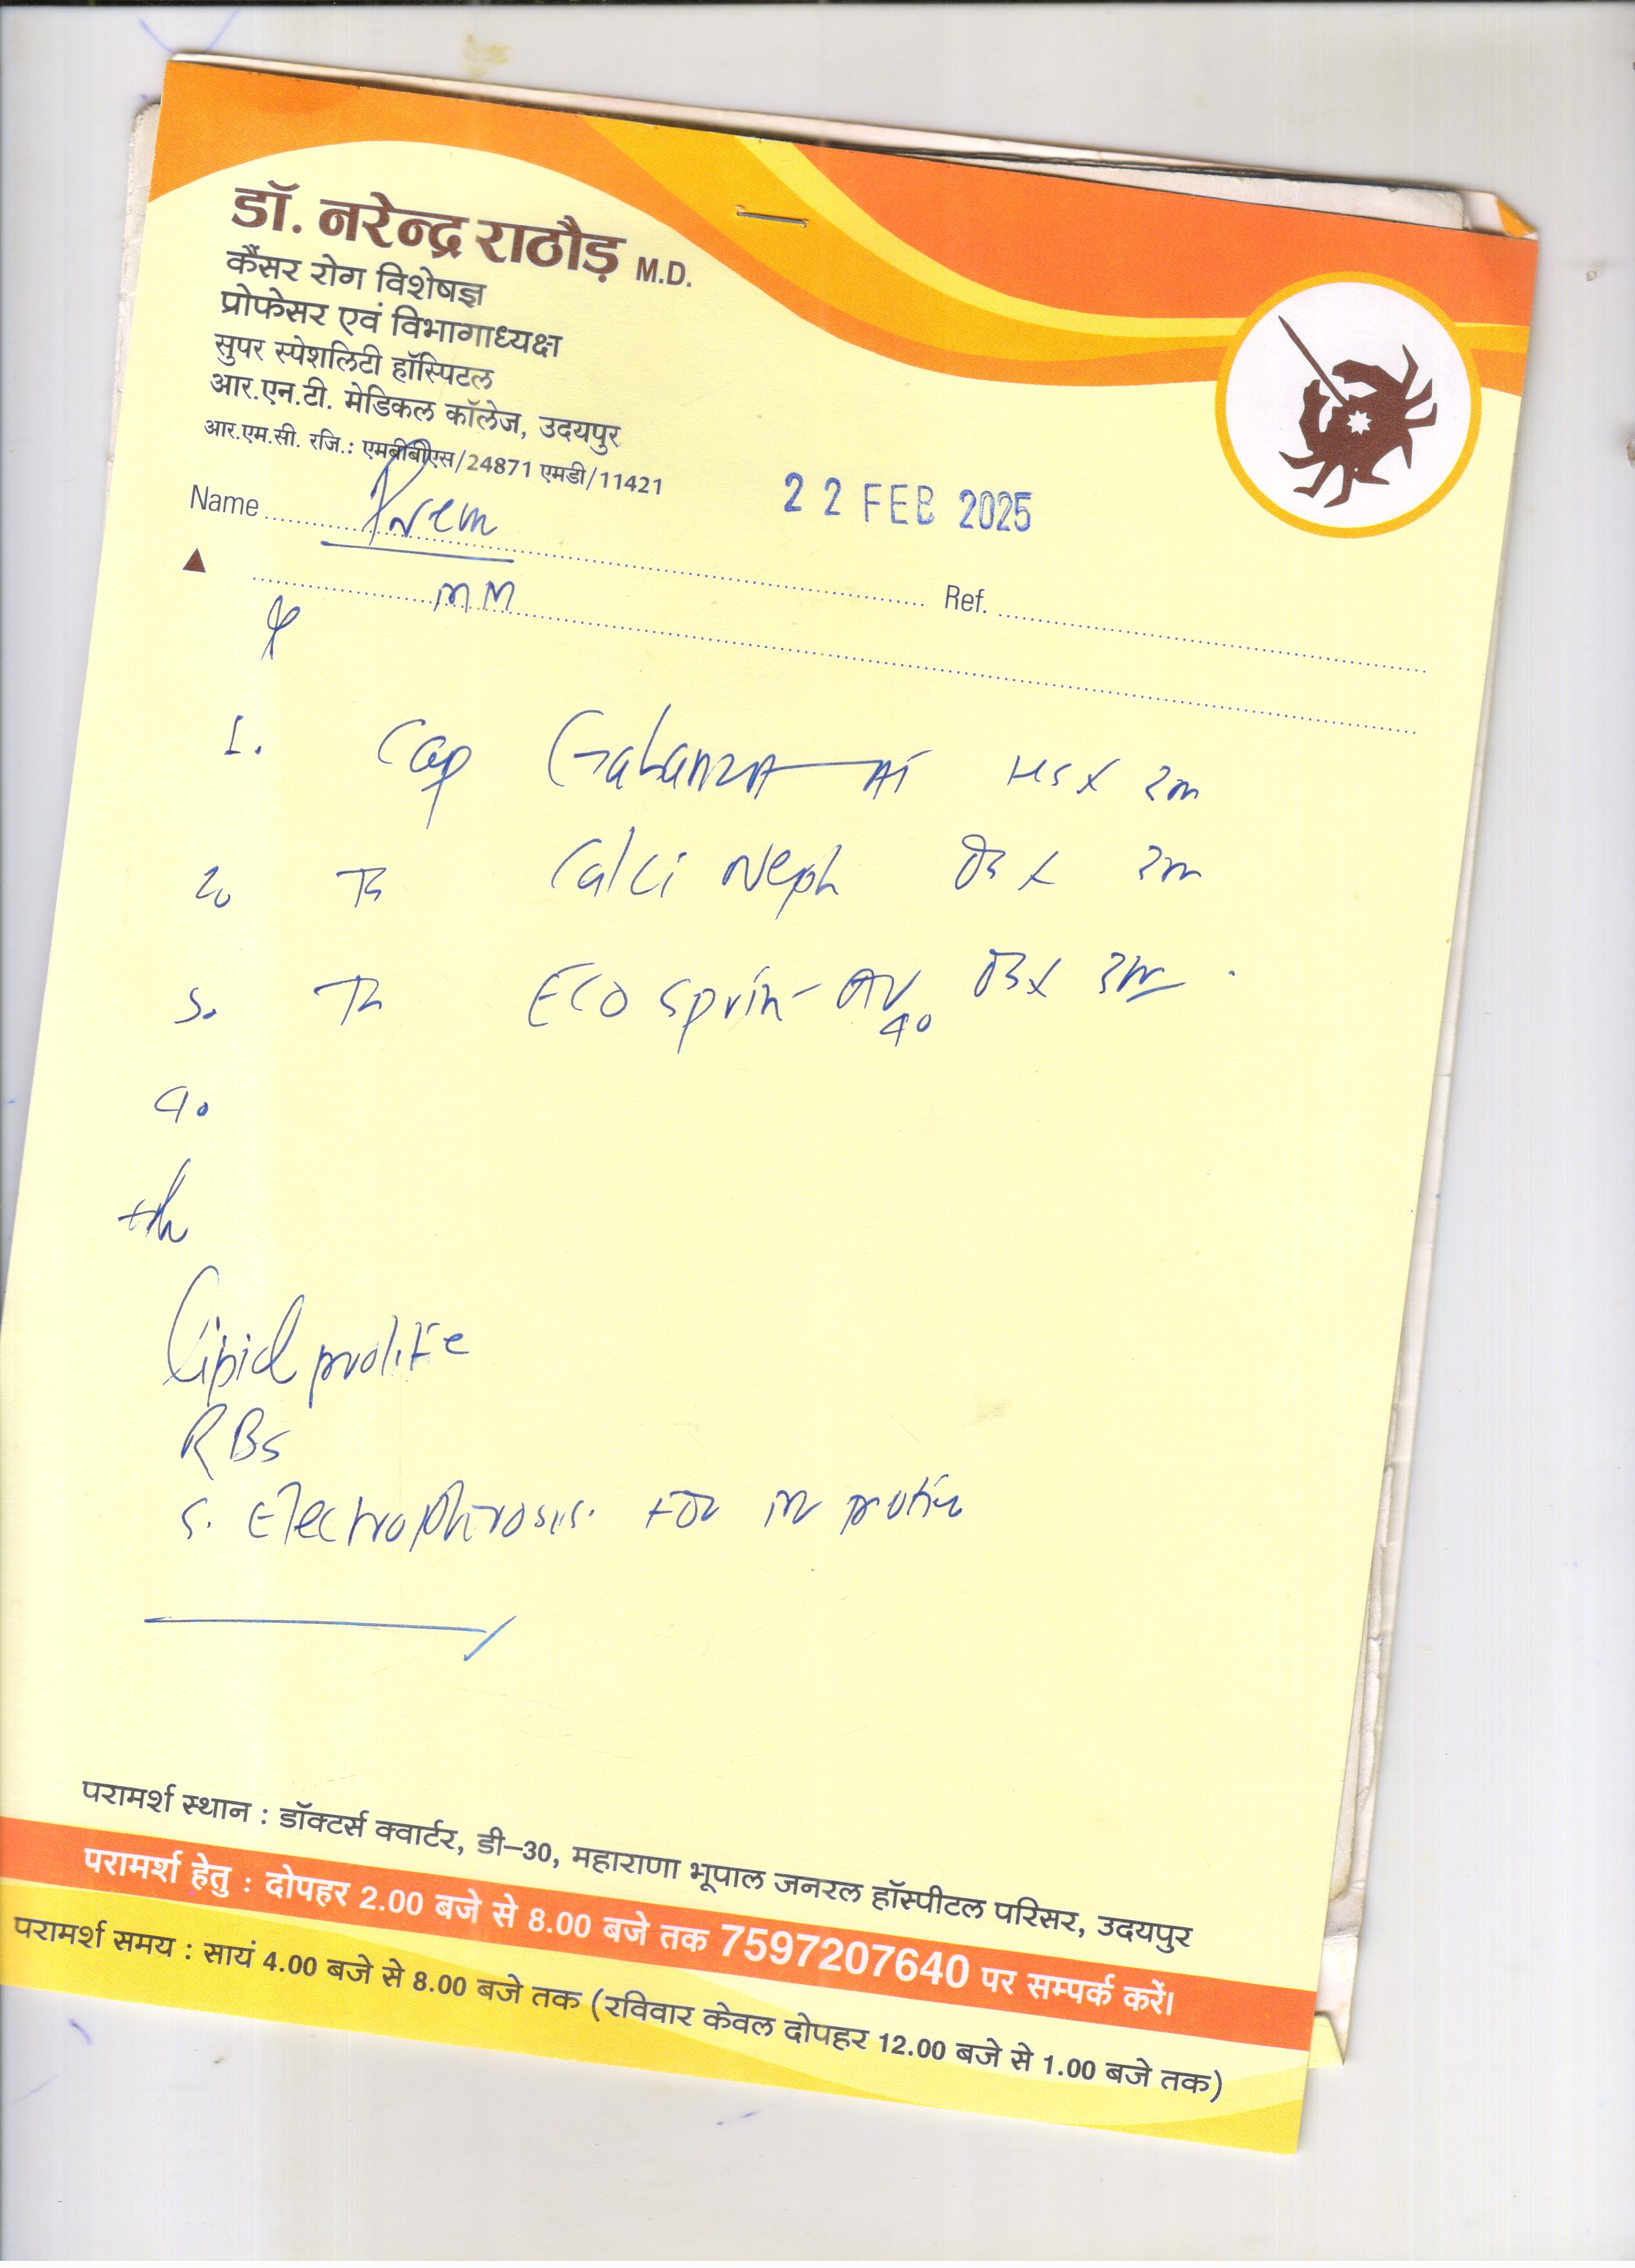 डॉ. नरेन्द्र राठौड़ M.D.
कैंसर रोग विशेषज्ञ
प्रोफेसर एवं विभागाध्यक्ष
सुपर स्पेशलिटी हॉस्पिटल
आर.एन.टी. मेडिकल कॉलेज, उदयपुर
आर.एम.सी. रजि.: एमबीबीएस/24871 एमडी/11421
Name Prem
22 FEB 2025
Ref.
MM
1. Cap Gabanza AT HS x 2m
2. Tb Calci Neph OD x 2m
3. Tb ECosprin-AV 40 OD x 2m
4.
Lipid profile
RBS
S. Electrophrosis. For M protin
परामर्श स्थान : डॉक्टर्स क्वार्टर, डी-30, महाराणा भूपाल जनरल हॉस्पीटल परिसर, उदयपुर
परामर्श हेतु : दोपहर 2.00 बजे से 8.00 बजे तक 7597207640 पर सम्पर्क करें।
परामर्श समय : सायं 4.00 बजे से 8.00 बजे तक (रविवार केवल दोपहर 12.00 बजे से 1.00 बजे तक)